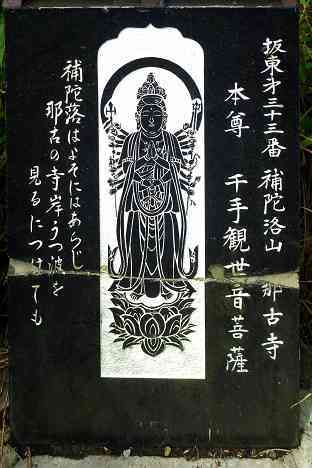 坂東才三十三番 補陀洛山 那古寺
本尊 千手観世音菩薩
補陀落はよそにはあらじ
那古の寺岸うつ波を
見るにつけても